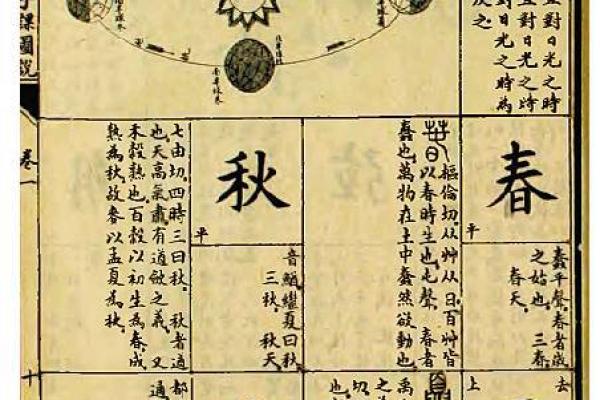 對日光之時
對日光之時
對日光之時為
反之
春
平
蠢平聲。春者歲
之始也。三春。
春天。
樞倫切。从艸从日。百艸皆
以春時生也。屯聲。春者
蠢也。萬物在土中蠢然欲動也。
秋
平
音鰌。繼夏曰秋
三秋。秋天
七由切。四時三曰秋。秋者遒
也。天高氣肅。有遒斂之義。又
禾穀熟也。百穀以初生為春。成
熟為秋。故麥以孟夏為秋。
去
上
禹
之
切
也
都
通
課圖說
卷一
十